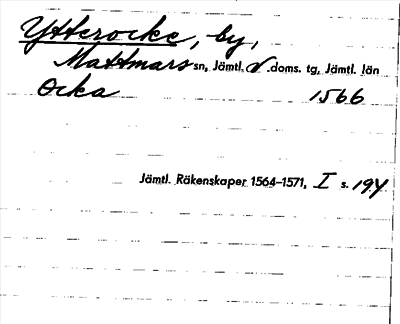 Ytterocke, by,
Mattmars sn, Jämtl. v. doms. tg, Jämtl. län
Ocka 1566
Jämtl. Räkenskaper 1564–1571, I s. 194